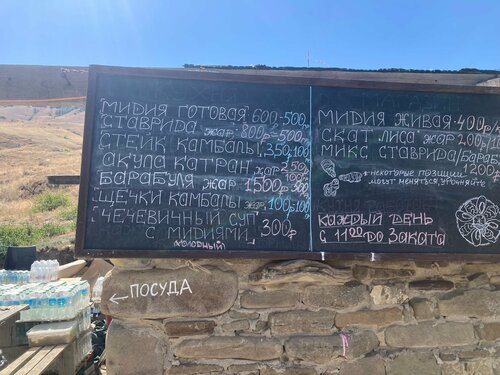 МИДИЯ ГОТОВАЯ 600-500
СТАВРИДА ЖАР. 800р-500р
СТЕЙК КАМБАЛЫ 350р,100г
АКУЛА КАТРАН ЖАР.
БАРАБУЛЯ ЖАР 1500р
ЩЕЧКИ КАМБАЛЫ ЖАР 100р,100г
ЧЕЧЕВИЧНЫЙ СУП
С МИДИЯМИ 300р
ХОЛОДНЫЙ
МИДИЯ ЖИВАЯ 400р
СКАТ ЛИСА ЖАР 200р/100
МИКС СТАВРИДА/БАРАБ
1200р
*НЕКОТОРЫЕ ПОЗИЦИИ
МОГУТ МЕНЯТЬСЯ, УТОЧНЯЙТЕ
КАЖДЫЙ ДЕНЬ
С 11.00 ДО ЗАКАТА
← ПОСУДА